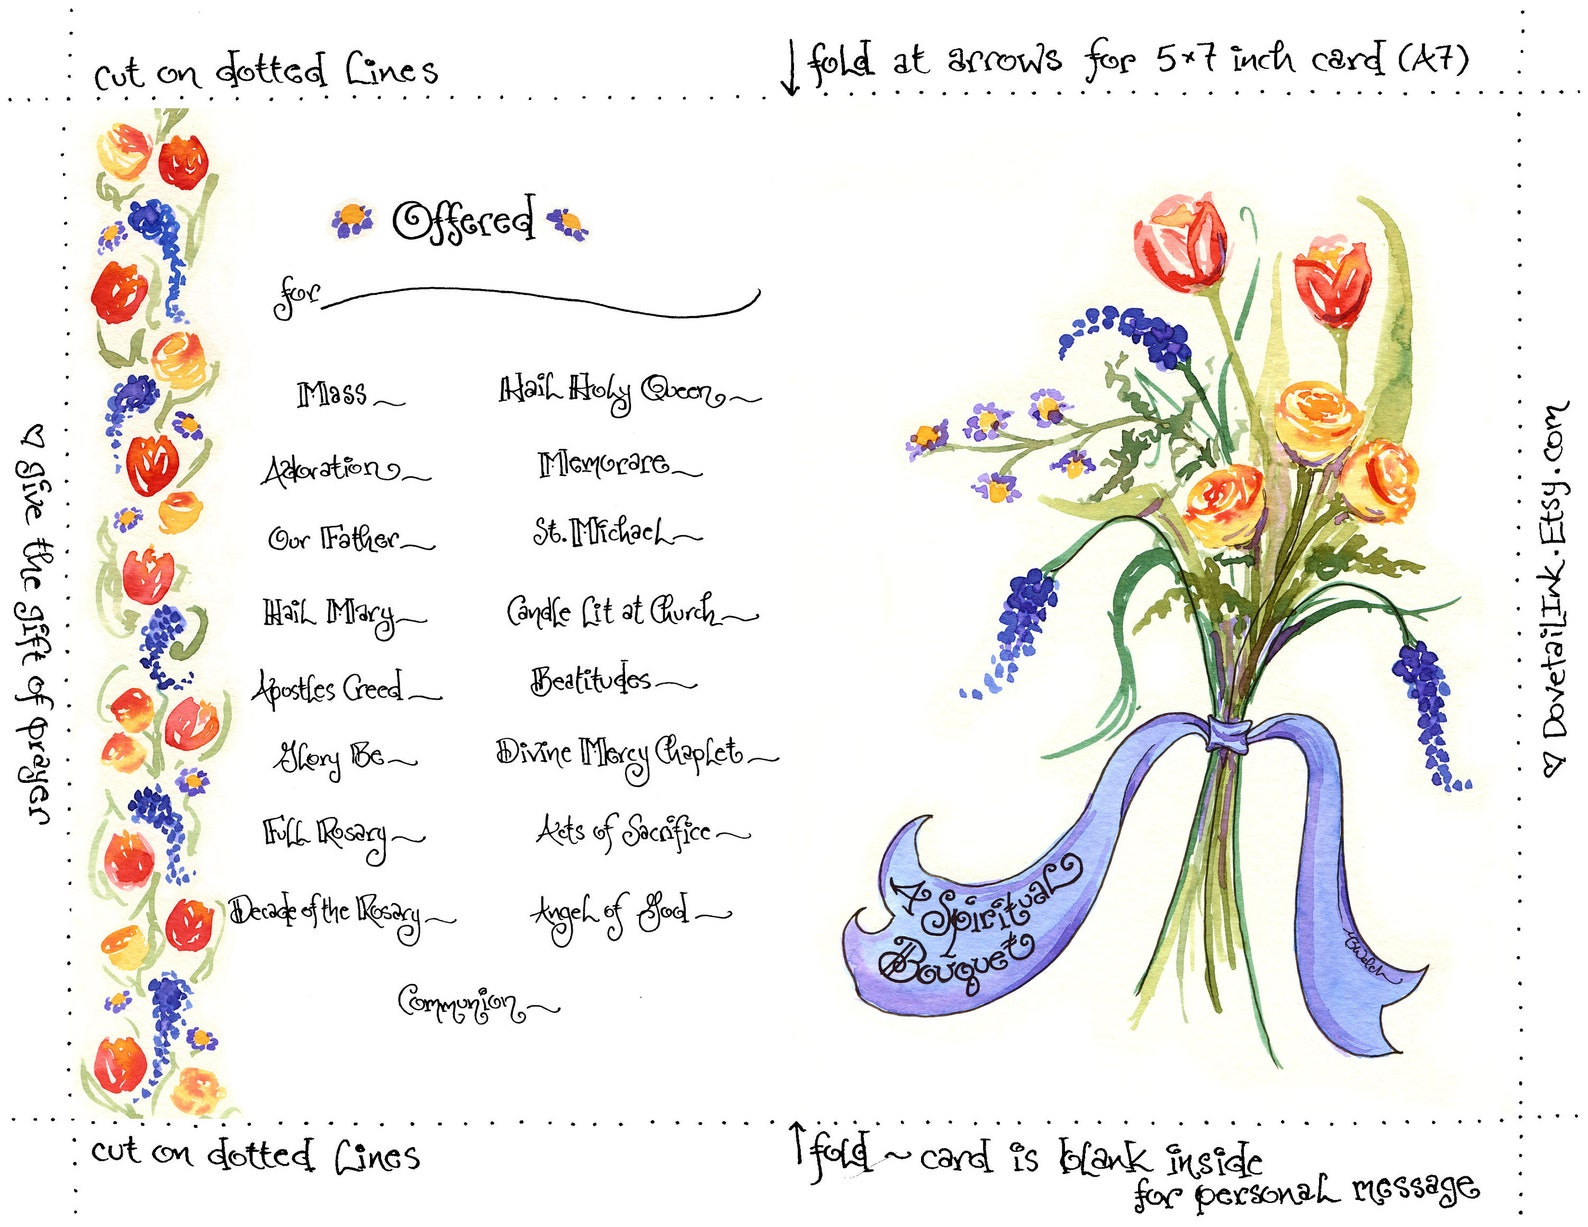 cut on dotted lines
fold at arrows for 5x7 inch card (A7)
Offered
for
Mass ~
Adoration ~
Our Father ~
Hail Mary ~
Apostles Creed ~
Glory Be ~
Full Rosary ~
Decade of the Rosary ~
Hail Holy Queen ~
Memorare ~
St. Michael ~
Candle Lit at Church ~
Beatitudes ~
Divine Mercy Chaplet ~
Acts of Sacrifice ~
Angel of God ~
Communion ~
A Spiritual
Bouquet
BWelch
♡ give the gift of prayer
♡ DovetailInk.Etsy.com
cut on dotted lines
fold ~ card is blank inside
for personal message